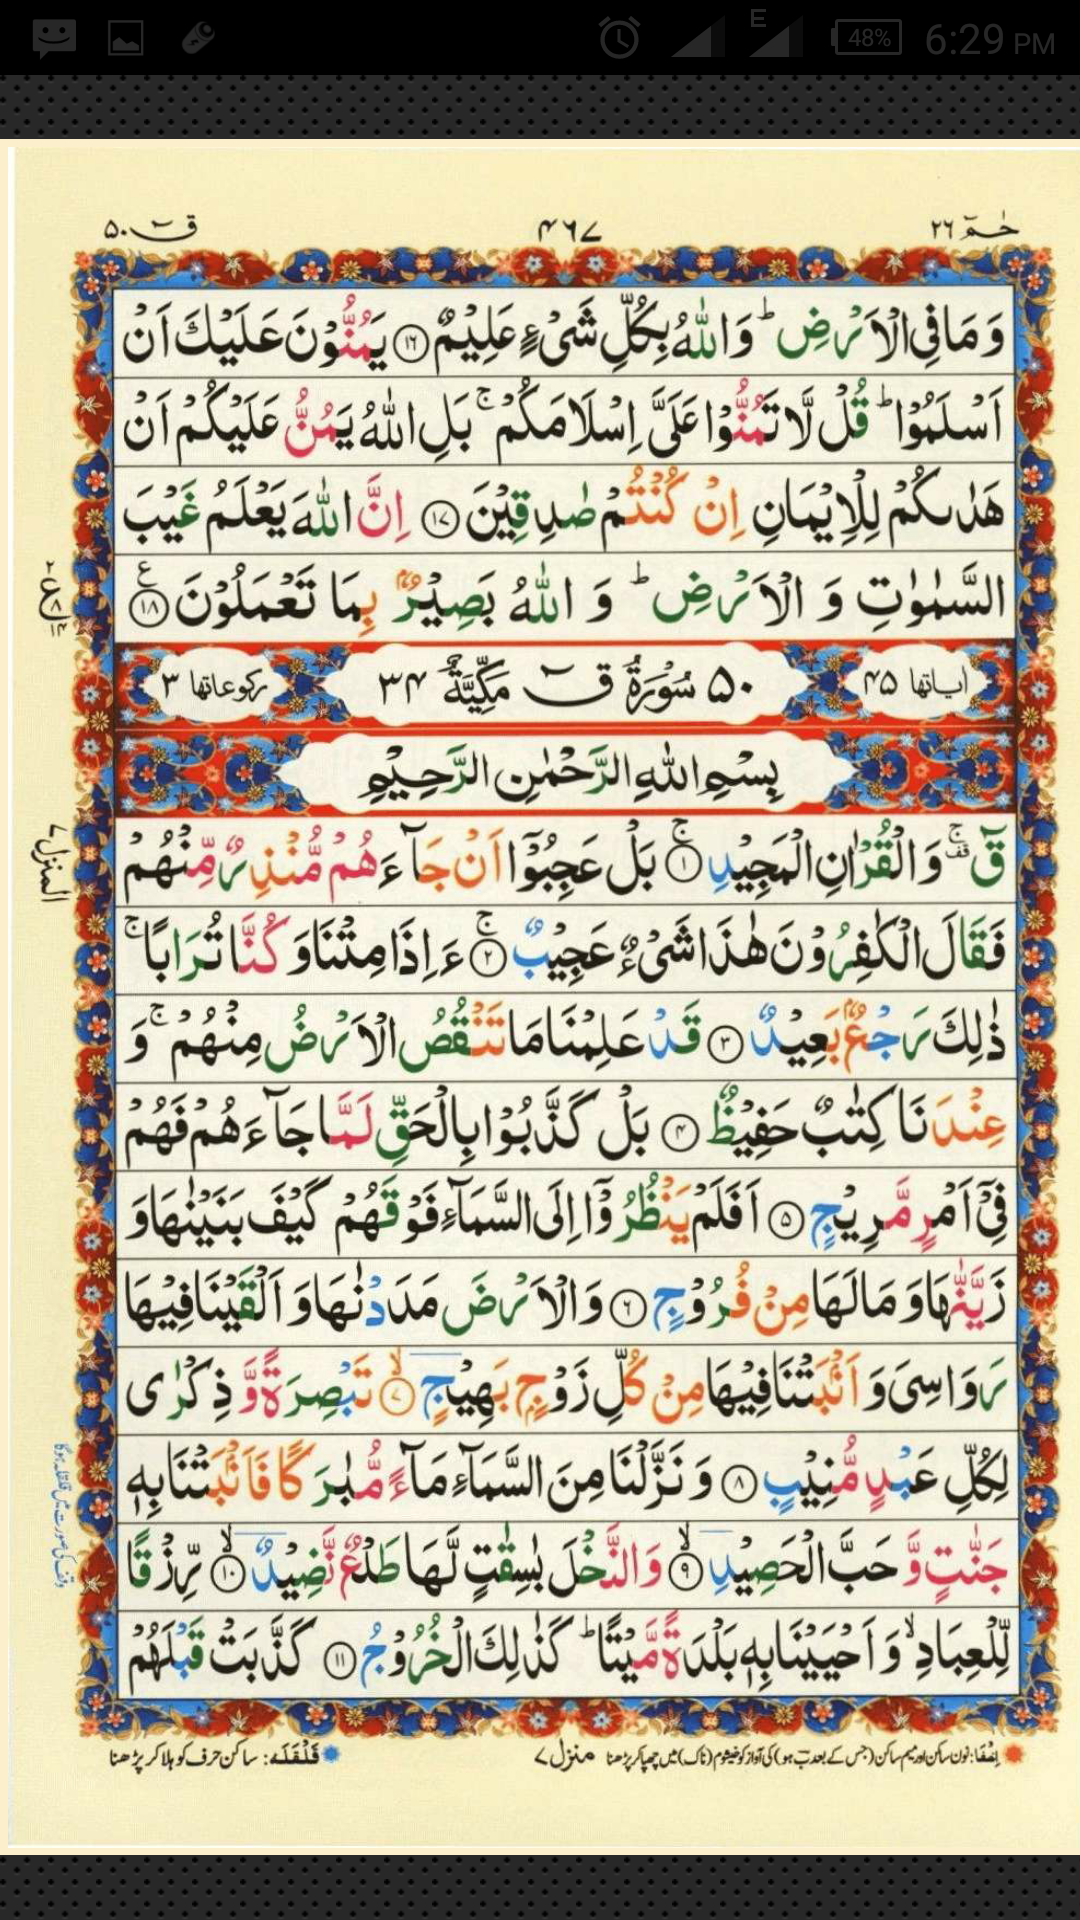 6:29 PM
48%
E
حٰمٓ ٢٦
٤٦٧
قٓ ٥٠
وَمَا فِی الْاَرْضِ ؕ وَاللّٰهُ بِكُلِّ شَیْءٍ عَلِیْمٌ ﴿١٦﴾ یَمُنُّوْنَ عَلَیْكَ اَنْ
اَسْلَمُوْا ؕ قُلْ لَّا تَمُنُّوْا عَلَیَّ اِسْلَامَكُمْ ۚ بَلِ اللّٰهُ یَمُنُّ عَلَیْكُمْ اَنْ
هَدٰىكُمْ لِلْاِیْمَانِ اِنْ كُنْتُمْ صٰدِقِیْنَ ﴿١٧﴾ اِنَّ اللّٰهَ یَعْلَمُ غَیْبَ
السَّمٰوٰتِ وَ الْاَرْضِ ؕ وَ اللّٰهُ بَصِیْرٌۢ بِمَا تَعْمَلُوْنَ ﴿١٨﴾ ع
٢ ع ٨ ١٤
اٰیاتها ٤٥
٥٠ سُوْرَةُ قٓ مَكِّیَّةٌ ٣٤
ركوعاتها ٣
بِسْمِ اللّٰهِ الرَّحْمٰنِ الرَّحِیْمِ
المنزل ٧
قٓ ۚ۫ وَالْقُرْاٰنِ الْمَجِیْدِ ﴿١﴾ۚ بَلْ عَجِبُوْۤا اَنْ جَآءَهُمْ مُّنْذِرٌ مِّنْهُمْ
فَقَالَ الْكٰفِرُوْنَ هٰذَا شَیْءٌ عَجِیْبٌ ﴿٢﴾ۚ ءَاِذَا مِتْنَا وَ كُنَّا تُرَابًا ۚ
ذٰلِكَ رَجْعٌۢ بَعِیْدٌ ﴿٣﴾ قَدْ عَلِمْنَا مَا تَنْقُصُ الْاَرْضُ مِنْهُمْ ۚ وَ
عِنْدَنَا كِتٰبٌ حَفِیْظٌ ﴿٤﴾ بَلْ كَذَّبُوْا بِالْحَقِّ لَمَّا جَآءَهُمْ فَهُمْ
فِیْۤ اَمْرٍ مَّرِیْجٍ ﴿٥﴾ اَفَلَمْ یَنْظُرُوْۤا اِلَی السَّمَآءِ فَوْقَهُمْ كَیْفَ بَنَیْنٰهَا وَ
زَیَّنّٰهَا وَ مَا لَهَا مِنْ فُرُوْجٍ ﴿٦﴾ وَالْاَرْضَ مَدَدْنٰهَا وَ اَلْقَیْنَا فِیْهَا
رَوَاسِیَ وَ اَنْۢبَتْنَا فِیْهَا مِنْ كُلِّ زَوْجٍۭ بَهِیْجٍ ﴿٧﴾ۙ تَبْصِرَةً وَّ ذِكْرٰی
لِكُلِّ عَبْدٍ مُّنِیْبٍ ﴿٨﴾ وَ نَزَّلْنَا مِنَ السَّمَآءِ مَآءً مُّبٰرَكًا فَاَنْۢبَتْنَا بِهٖ
جَنّٰتٍ وَّ حَبَّ الْحَصِیْدِ ﴿٩﴾ۙ وَالنَّخْلَ بٰسِقٰتٍ لَّهَا طَلْعٌ نَّضِیْدٌ ﴿١٠﴾ۙ رِّزْقًا
لِّلْعِبَادِ ۙ وَ اَحْیَیْنَا بِهٖ بَلْدَةً مَّیْتًا ؕ كَذٰلِكَ الْخُرُوْجُ ﴿١١﴾ كَذَّبَتْ قَبْلَهُمْ
وقف کی صورت میں قلقلہ ہوگا
اِخفَا: نون ساکن اور میم ساکن (جس کے بعد ب ہو) کی آواز کو خیشوم (ناک) میں چھپا کر پڑھنا
منزل ٧
قَلْقَلَه: ساکن حرف کو ہلا کر پڑھنا